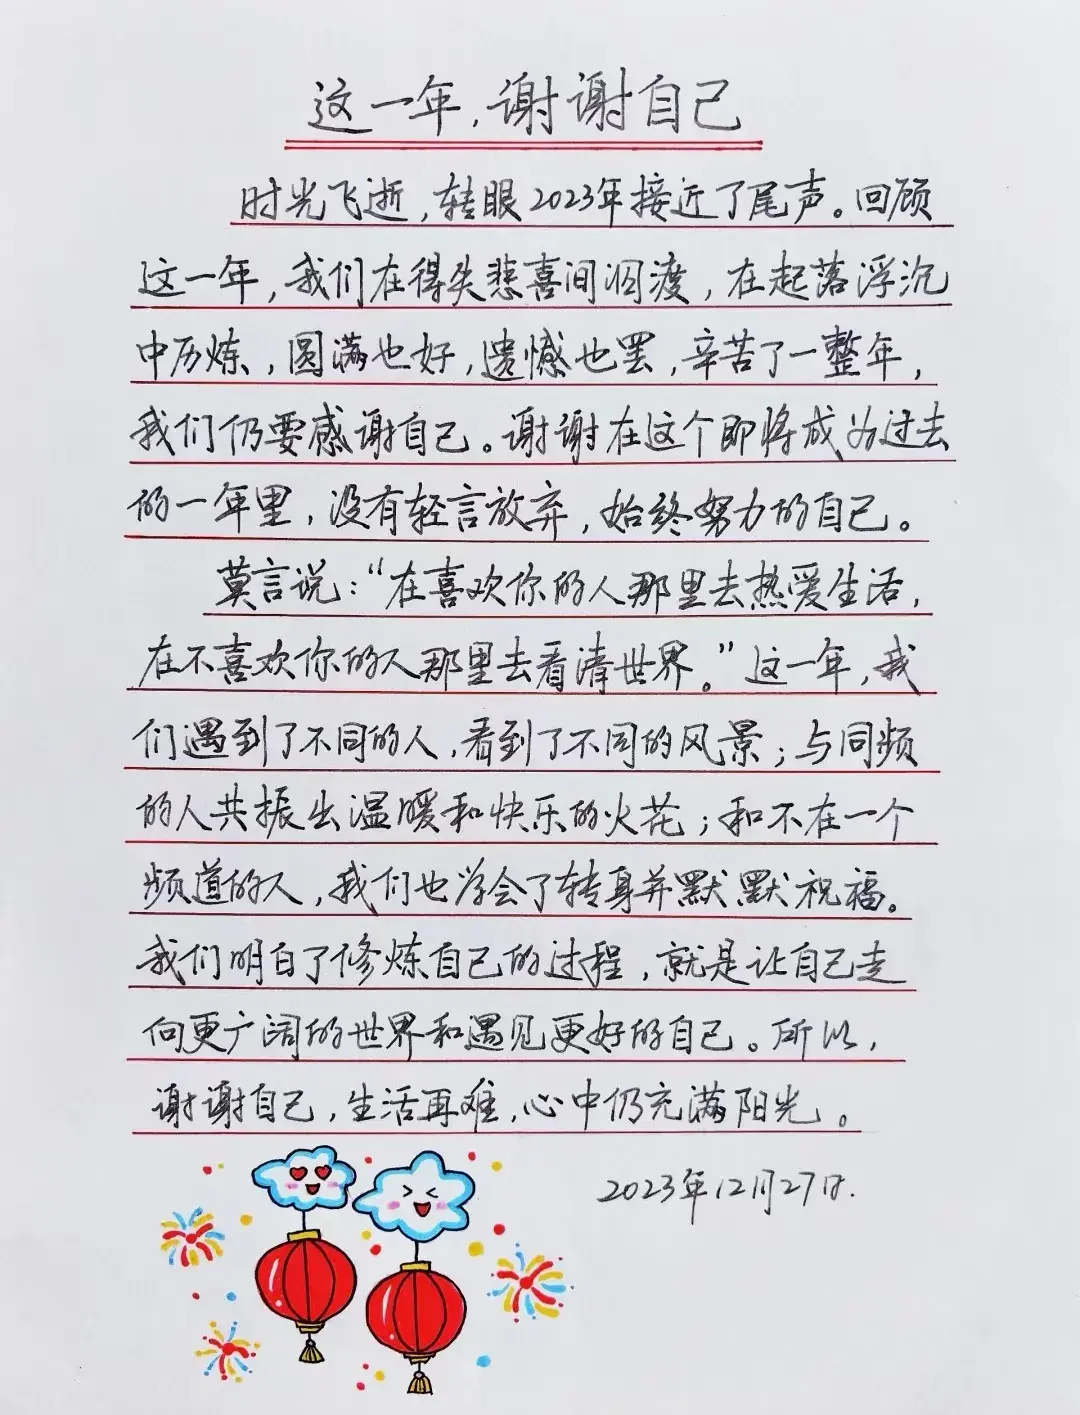 这一年,谢谢自己
时光飞逝,转眼2023年接近了尾声。回顾
这一年,我们在得失悲喜间泅渡,在起落浮沉
中历炼,圆满也好,遗憾也罢,辛苦了一整年,
我们仍要感谢自己。谢谢在这个即将成为过去
的一年里,没有轻言放弃,始终努力的自己。
莫言说:“在喜欢你的人那里去热爱生活,
在不喜欢你的人那里去看清世界。”这一年,我
们遇到了不同的人,看到了不同的风景;与同频
的人共振出温暖和快乐的火花;和不在一个
频道的人,我们也学会了转身并默默祝福。
我们明白了修炼自己的过程,就是让自己走
向更广阔的世界和遇见更好的自己。所以,
谢谢自己,生活再难,心中仍充满阳光。
2023年12月27日.